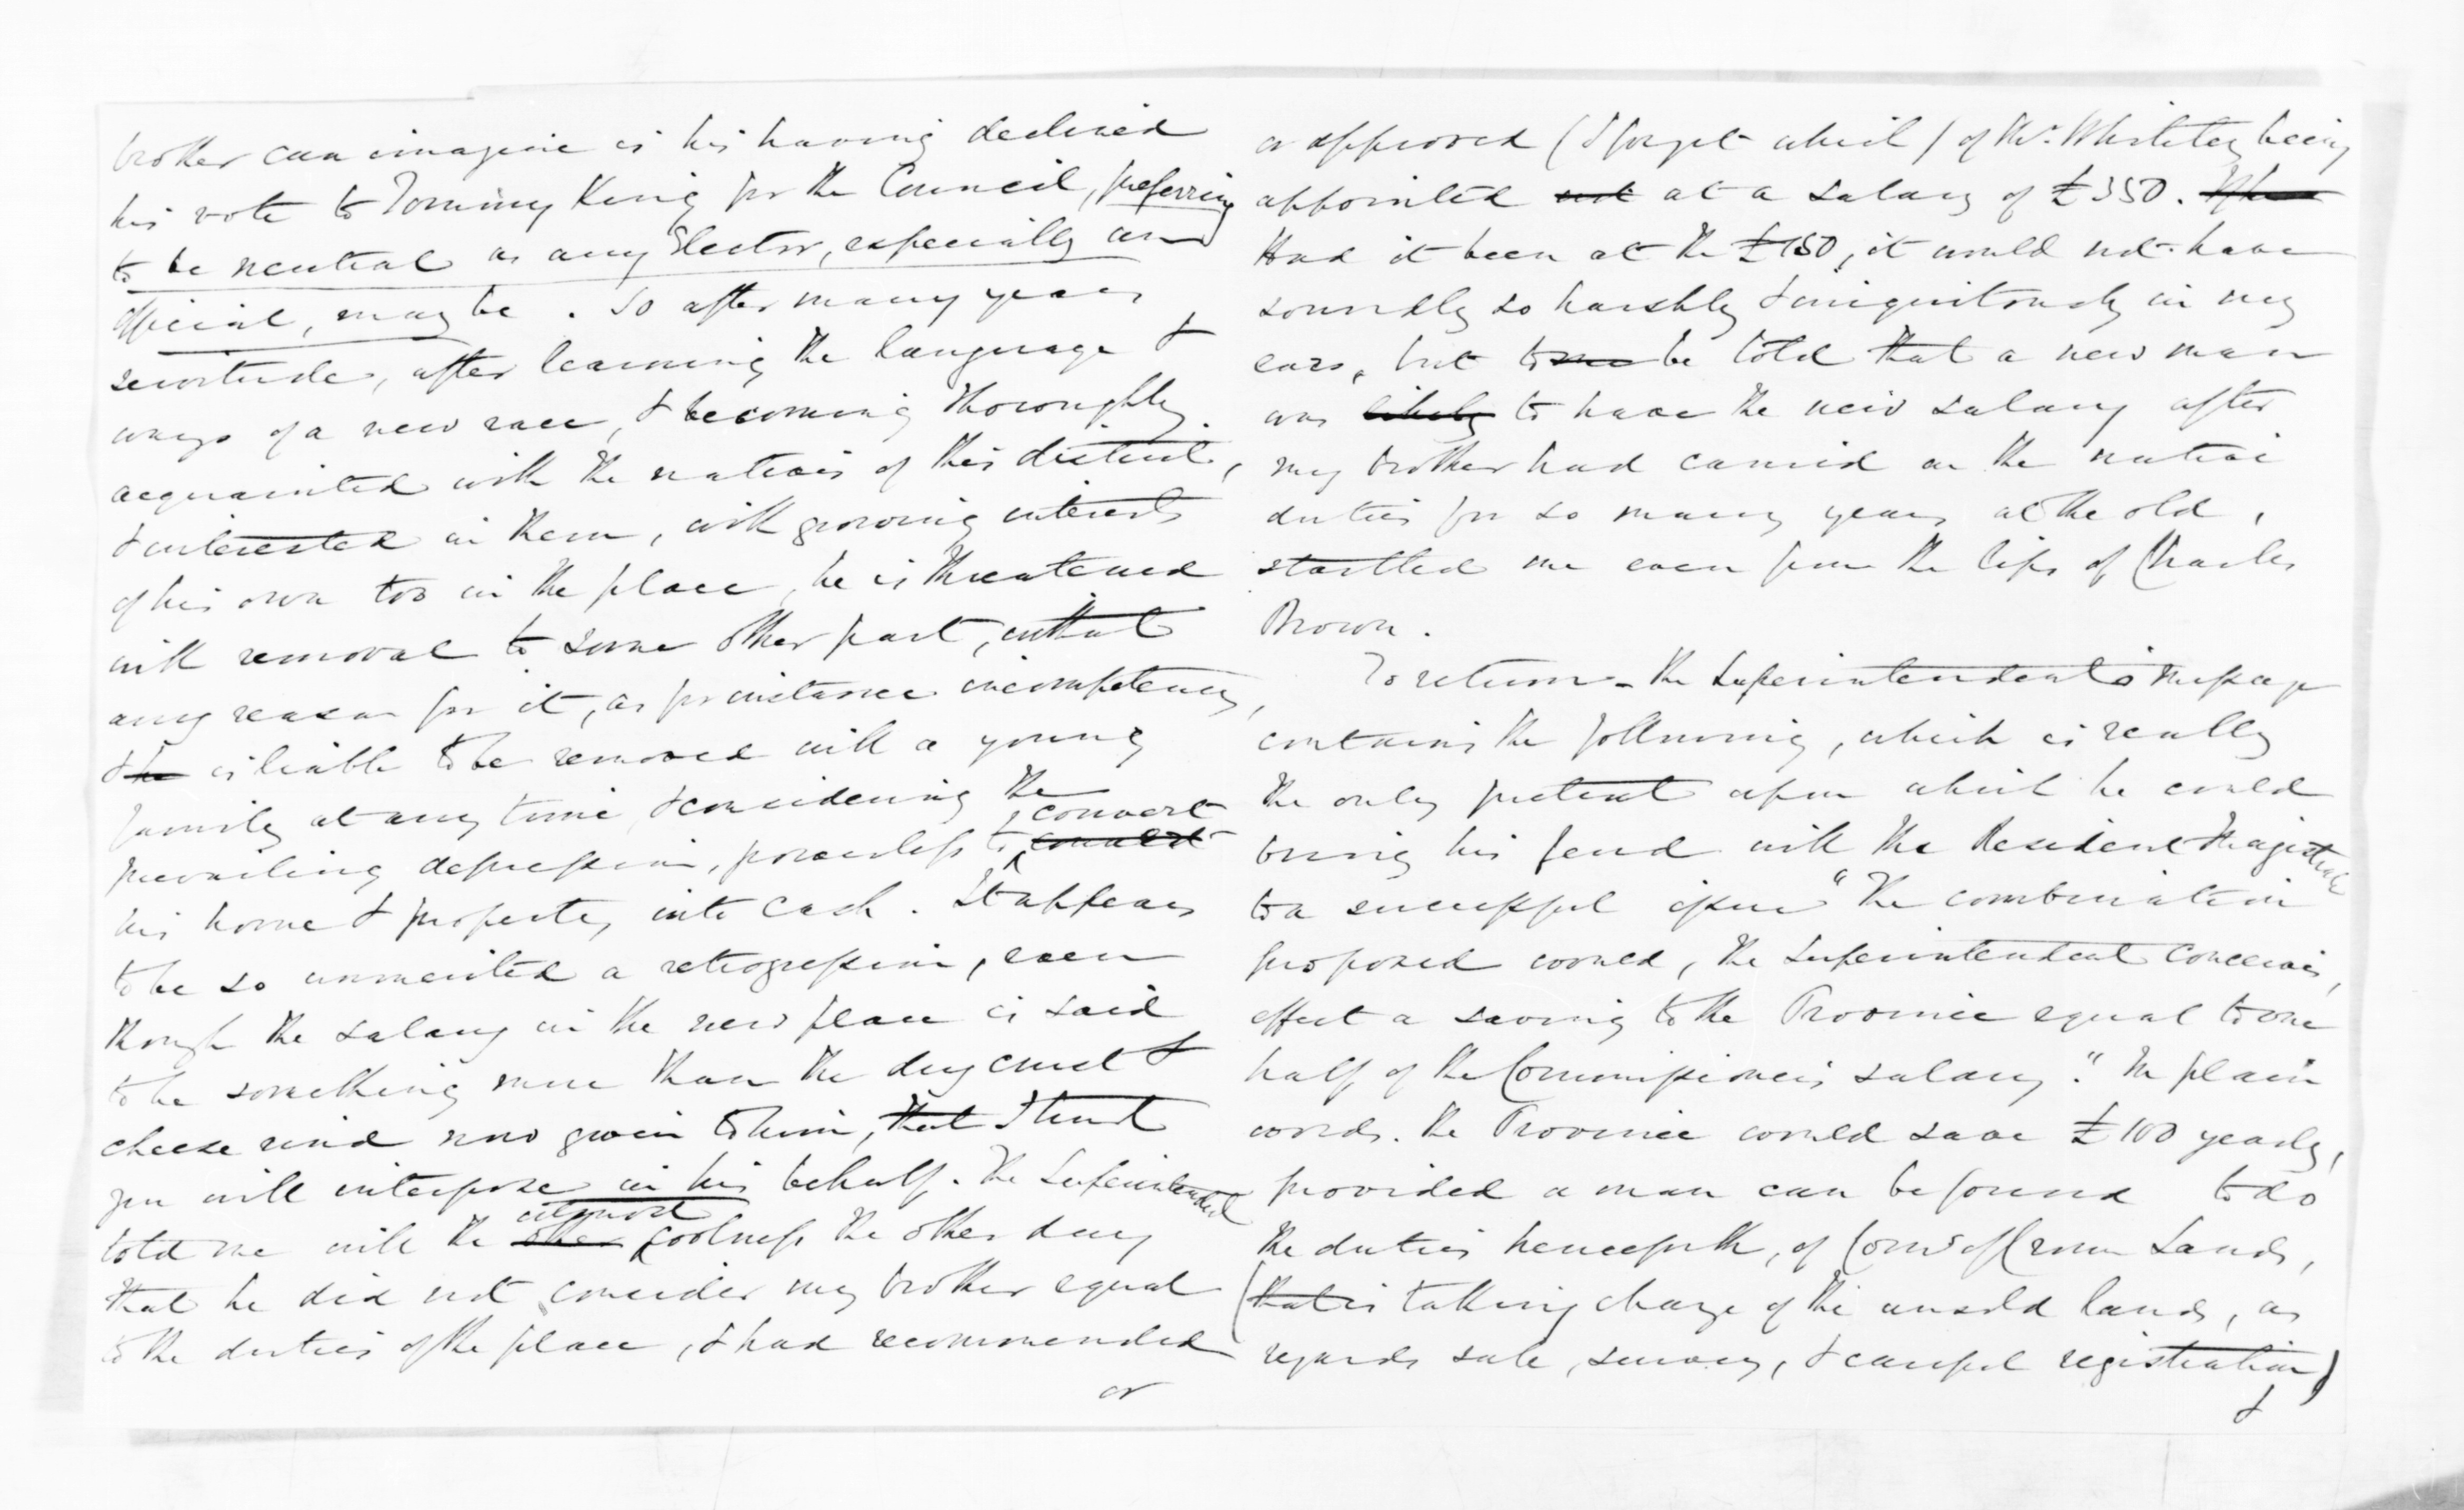 brother can imagine is his having declined
his vote to Tommy King for the Council, preferring
to be neutral as any Elector, especially an
official, may be. So after many years
servitude, after learning the language &
ways of a new race, & becoming thoroughly
acquainted with the natives of this district,
& interested in them, with growing interests
of his own too in the place, he is threatened
with removal to some other part, without
any reason for it, as for instance incompetency,
& he is liable to be removed with a young
family at any time, & considering the
prevailing depression, powerless to convert
his home & property into cash. It appears
to be so unmerited a retrogression, even
though the salary in the new place is said
to be something more than the dry crust &
cheese rind now given to him, that I trust
you will interpose in his behalf. The Superintendent
told me with the utmost coolness the other day
that he did not consider my brother equal
to the duties of the place, & had recommended
or
or approved (I forget which) of Mr. Whiteley being
appointed at a salary of £350.
Had it been at the £150, it would not have
sounded so harshly & iniquitously in my
ears, but to be told that a new man
was likely to have the new salary after
my brother had carried on the native
duties for so many years at the old,
startled me even from the lips of Charles
Brown.
To return - the Superintendent's message
contains the following, which is really
the only pretext upon which he could
bring his feud with the Resident Magistrate
to a successful issue "The combination
proposed would, the Superintendent conceives,
effect a saving to the Province equal to one
half of the Commissioner's salary." In plain
words. the Province could save £100 yearly,
provided a man can be found to do
the duties henceforth, of Comr of Crown Lands,
(that is taking charge of the unsold lands, as
regards sale, survey, & careful registration)
&